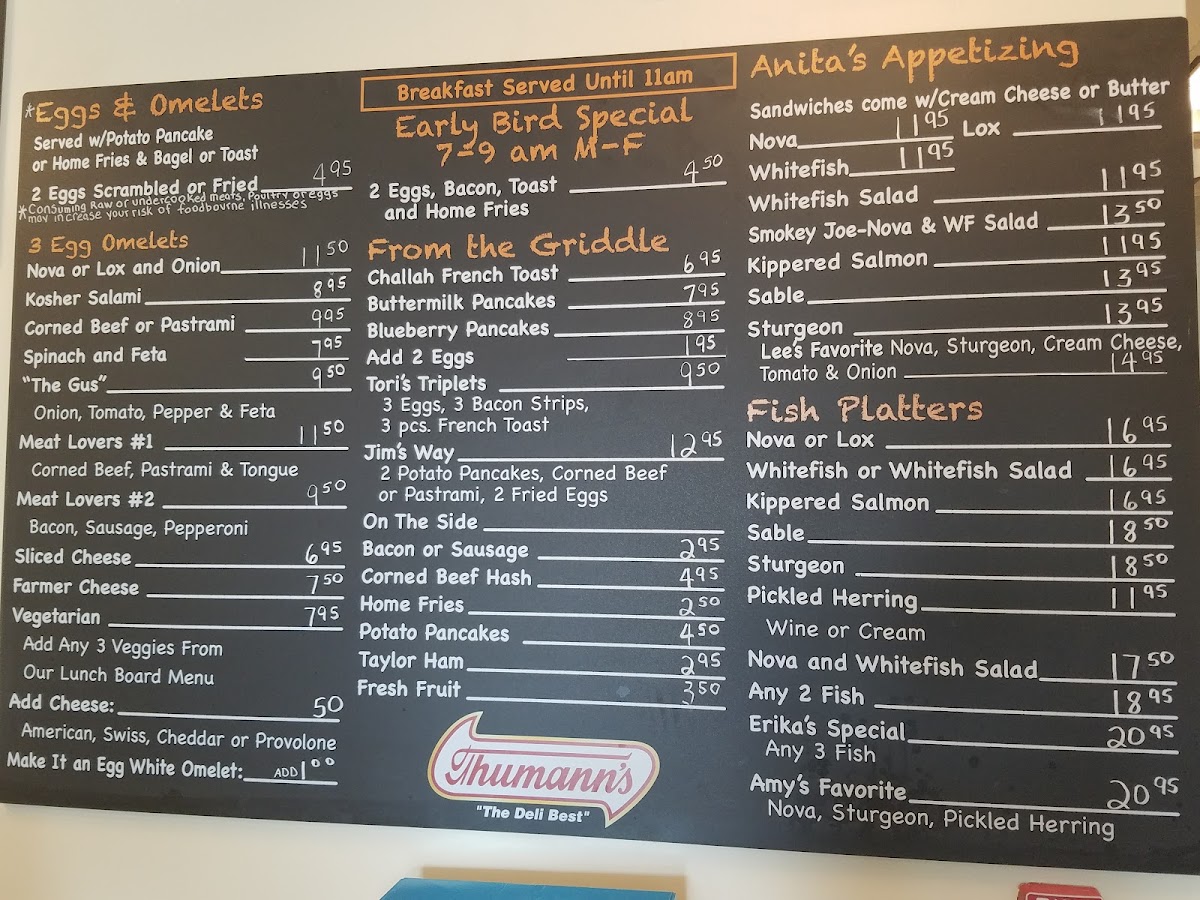 *Eggs & Omelets
Served w/Potato Pancake
or Home Fries & Bagel or Toast
2 Eggs Scrambled or Fried 4 95
*Consuming Raw or undercooked meats, Poultry or eggs
may increase your risk of foodbourne illnesses
3 Egg Omelets
Nova or Lox and Onion 11 50
Kosher Salami 8 95
Corned Beef or Pastrami 9 95
Spinach and Feta 7 95
"The Gus" 9 50
Onion, Tomato, Pepper & Feta
Meat Lovers #1 11 50
Corned Beef, Pastrami & Tongue
Meat Lovers #2 9 50
Bacon, Sausage, Pepperoni
Sliced Cheese 6 95
Farmer Cheese 7 50
Vegetarian 7 95
Add Any 3 Veggies From
Our Lunch Board Menu
Add Cheese: 50
American, Swiss, Cheddar or Provolone
Make It an Egg White Omelet: ADD 1 00
Breakfast Served Until 11am
Early Bird Special
7-9 am M-F
2 Eggs, Bacon, Toast 4 50
and Home Fries
From the Griddle
Challah French Toast 6 95
Buttermilk Pancakes 7 95
Blueberry Pancakes 8 95
Add 2 Eggs 1 95
Tori's Triplets 9 50
3 Eggs, 3 Bacon Strips,
3 pcs. French Toast
Jim's Way 12 95
2 Potato Pancakes, Corned Beef
or Pastrami, 2 Fried Eggs
On The Side
Bacon or Sausage 2 95
Corned Beef Hash 4 95
Home Fries 2 50
Potato Pancakes 4 50
Taylor Ham 2 95
Fresh Fruit 3 50
Thumann's
"The Deli Best"
Anita's Appetizing
Sandwiches come w/Cream Cheese or Butter
Nova 11 95 Lox 11 95
Whitefish 11 95
Whitefish Salad 11 95
Smokey Joe-Nova & WF Salad 13 50
Kippered Salmon 11 95
Sable 13 95
Sturgeon 13 95
Lee's Favorite Nova, Sturgeon, Cream Cheese,
Tomato & Onion 14 95
Fish Platters
Nova or Lox 16 95
Whitefish or Whitefish Salad 16 95
Kippered Salmon 16 95
Sable 18 50
Sturgeon 18 50
Pickled Herring 11 95
Wine or Cream
Nova and Whitefish Salad 17 50
Any 2 Fish 18 95
Erika's Special 20 95
Any 3 Fish
Amy's Favorite 20 95
Nova, Sturgeon, Pickled Herring